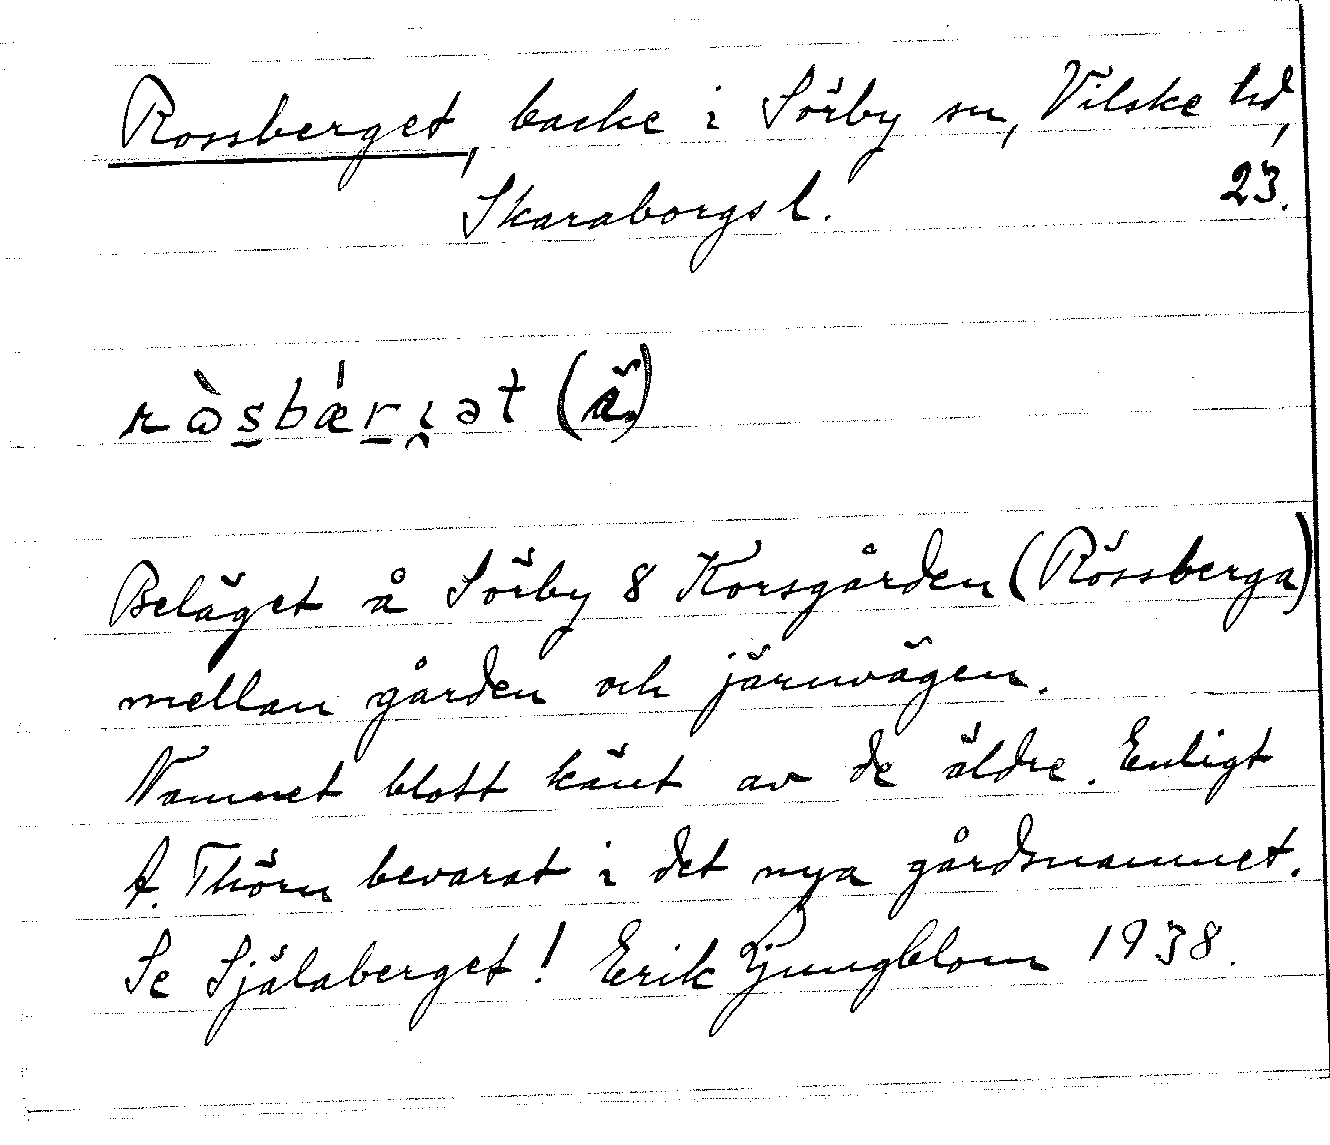 Rossberget, backe i Sörby sn, Vilske hd,
Skaraborgs l. 23.
ròsbǽrı̯ət (ä)
Beläget å Sörby 8 Korsgården (Rössberga)
mellan gården och järnvägen.
Namnet blott känt av de äldre. Enligt
A. Thörn bevarat i det nya gårdsnamnet.
Se Själaberget! Erik Ljungblom 1938.